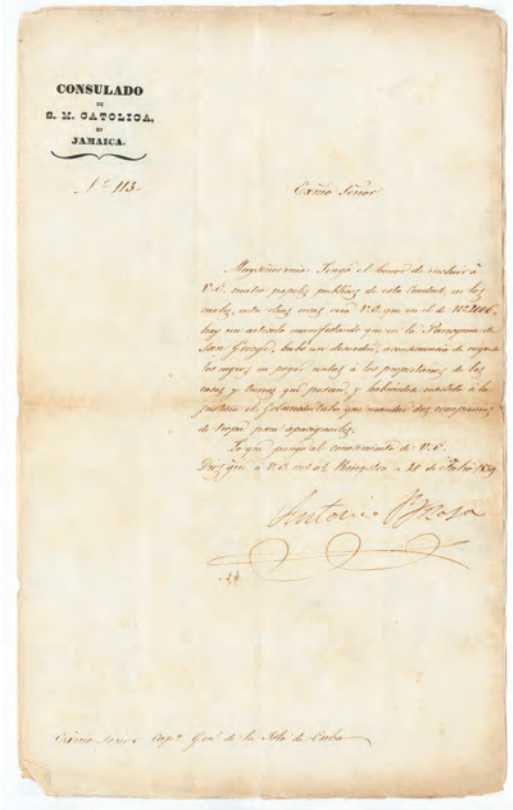 CONSULADO
DE
S. M. CATOLICA,
EN
JAMAICA.
Nº 113.
Exmo Señor
Muy señor mio: Tengo el honor de incluir à
V.E. cuatro papeles publicos de esta Ciudad, en los
cuales, entre otras cosas verá V.E. que en el de Nº
hay un articulo manifestando que en la Parroquia de
San George, hubo un desorden, a consecuencia de negarse
los negros en pagar rentas à los propietarios de las
casas y tierras que poseen, y habiendose resistido à la
justicia el Gobernador tubo que mandar dos companias
de tropa para apaciguarlos.
Lo que pongo al conocimiento de V.E.
Dios gue à V.E. ms as Kingston a 20 de Julio 1839
Antonio
Exmo Señor Capn Genl de la Isla de Cuba